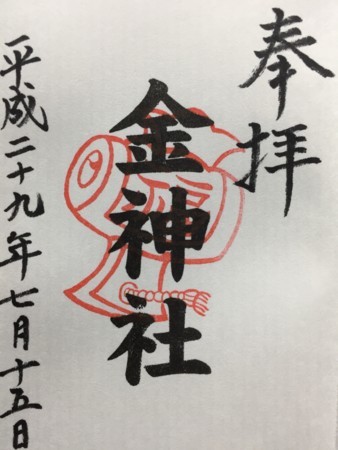 奉拝
金神社
平成二十九年七月十五日